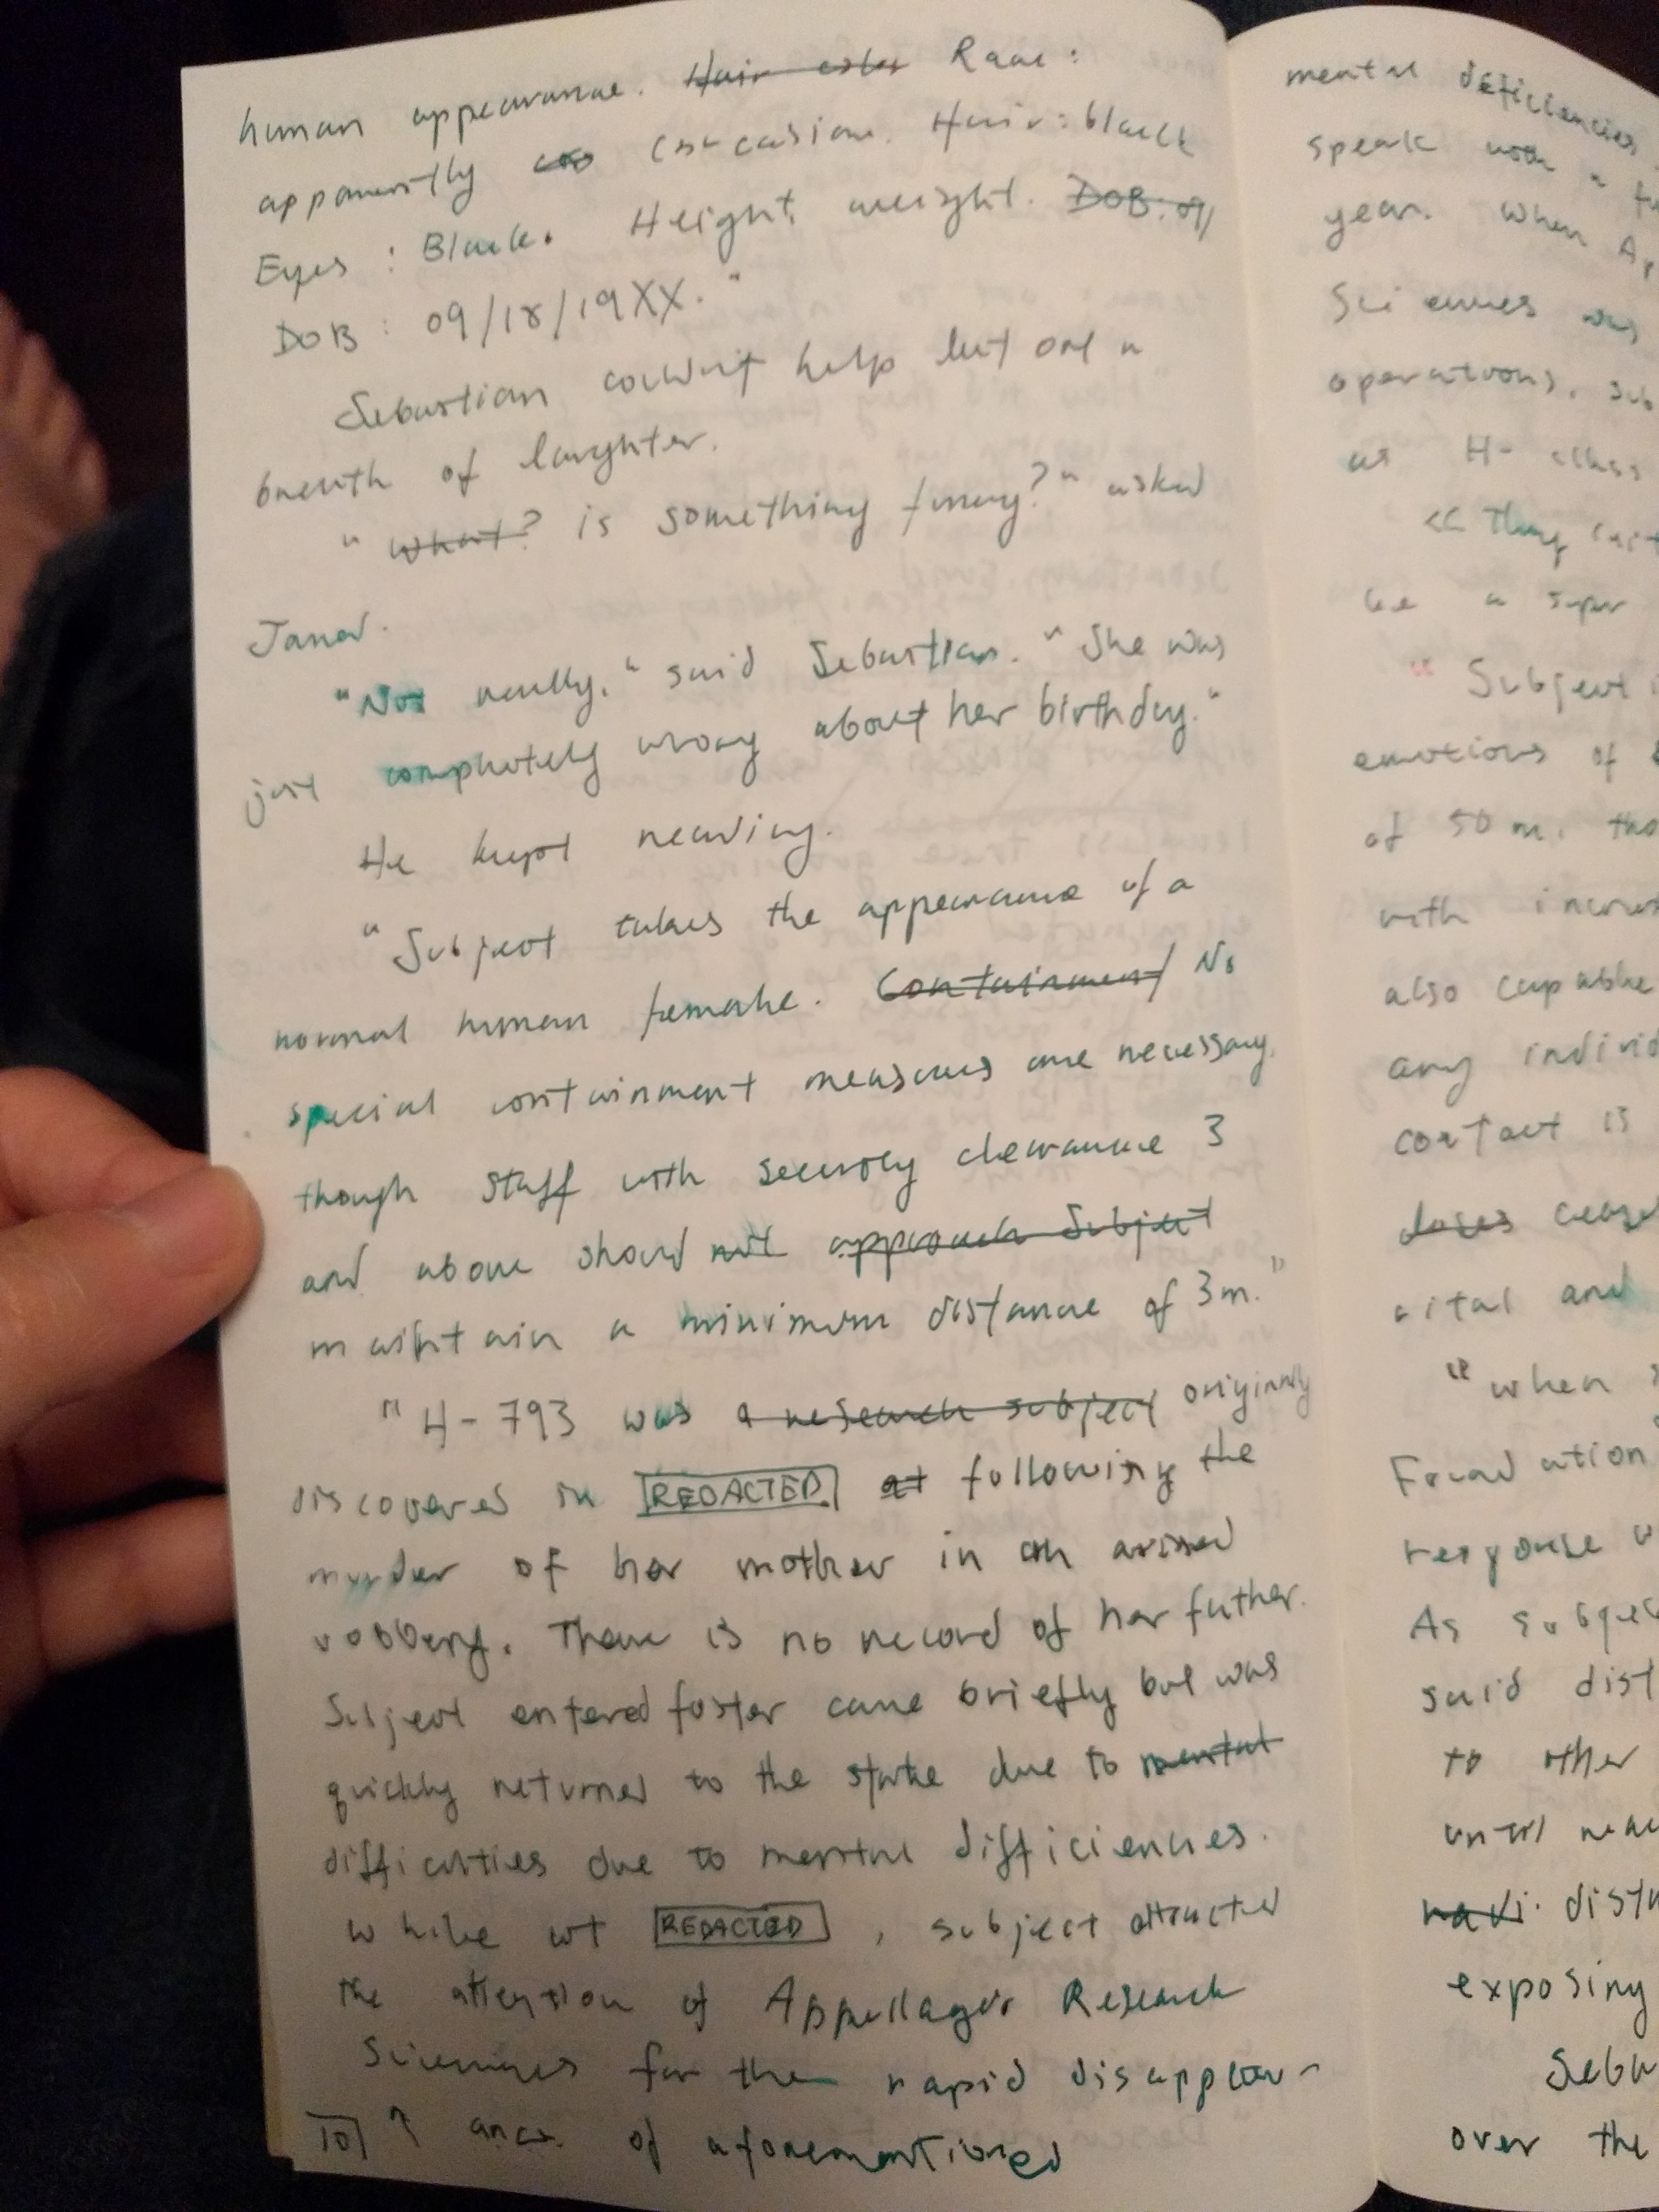 human appearance. Hair color Race :
apparently cau caucasian. Hair: black
Eyes : Black. Height, weight. DOB: 09/
DOB : 09/18/19XX."
Sebastian couldn't help but a
breath of laughter.
" What? is something funny?" asked
Janad.
"Not really," said Sebastian. "She was
just completely wrong about her birthday."
He kept reading.
"Subject takes the appearance of a
normal human female. Containment No
special containment measures are necessary,
though staff with security clearance 3
and above should not approach Subject
maintain a minimum distance of 3m."
"H-793 was a research subject originally
discovered in REDACTED at following the
murder of her mother in an armed
robbery. There is no record of her father.
Subject entered foster care briefly but was
quickly returned to the state due to mental
difficulties due to mental difficiencies.
While at REDACTED , subject attracted
the attention of Appellager Research
Sciences for the rapid disappear-
ance of aforementioned
mental deficiencies
speak with a
year. When
Sciences was
operations, sub
as H- class
be a super
" Subject
emotions of
of 50 m. tho
with increas
also capable
any individ
contact is
does cease
and
"when
Foundation
response
As subjec
said dist
to other
until reac
distu
exposing
Seba
over the